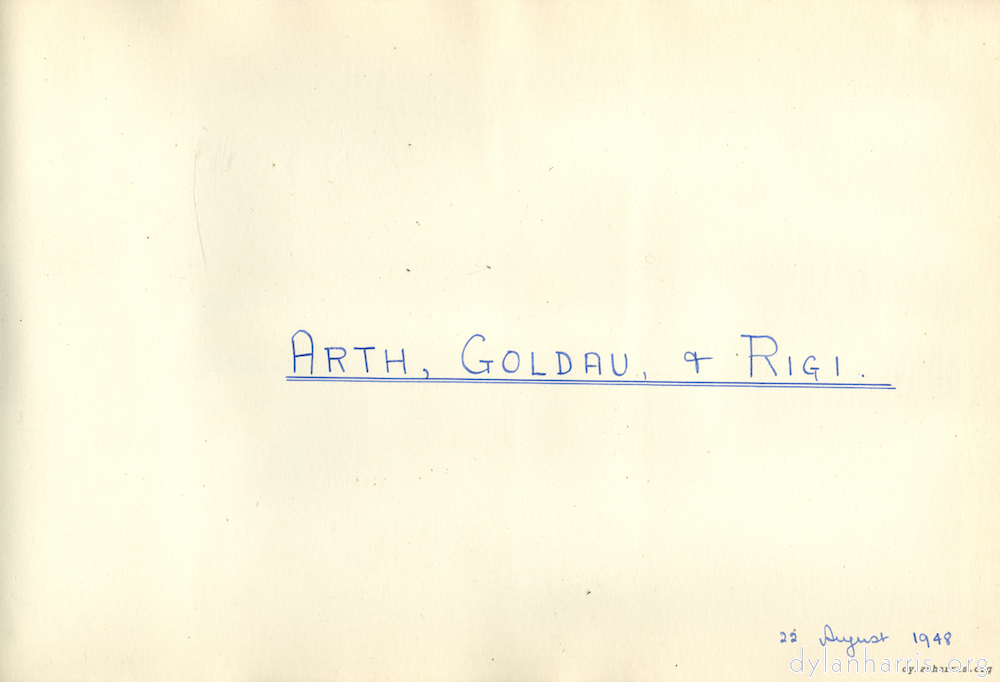 ARTH, GOLDAU, & RIGI.
22 August 1948
dylanharris.org
dylanharris.org